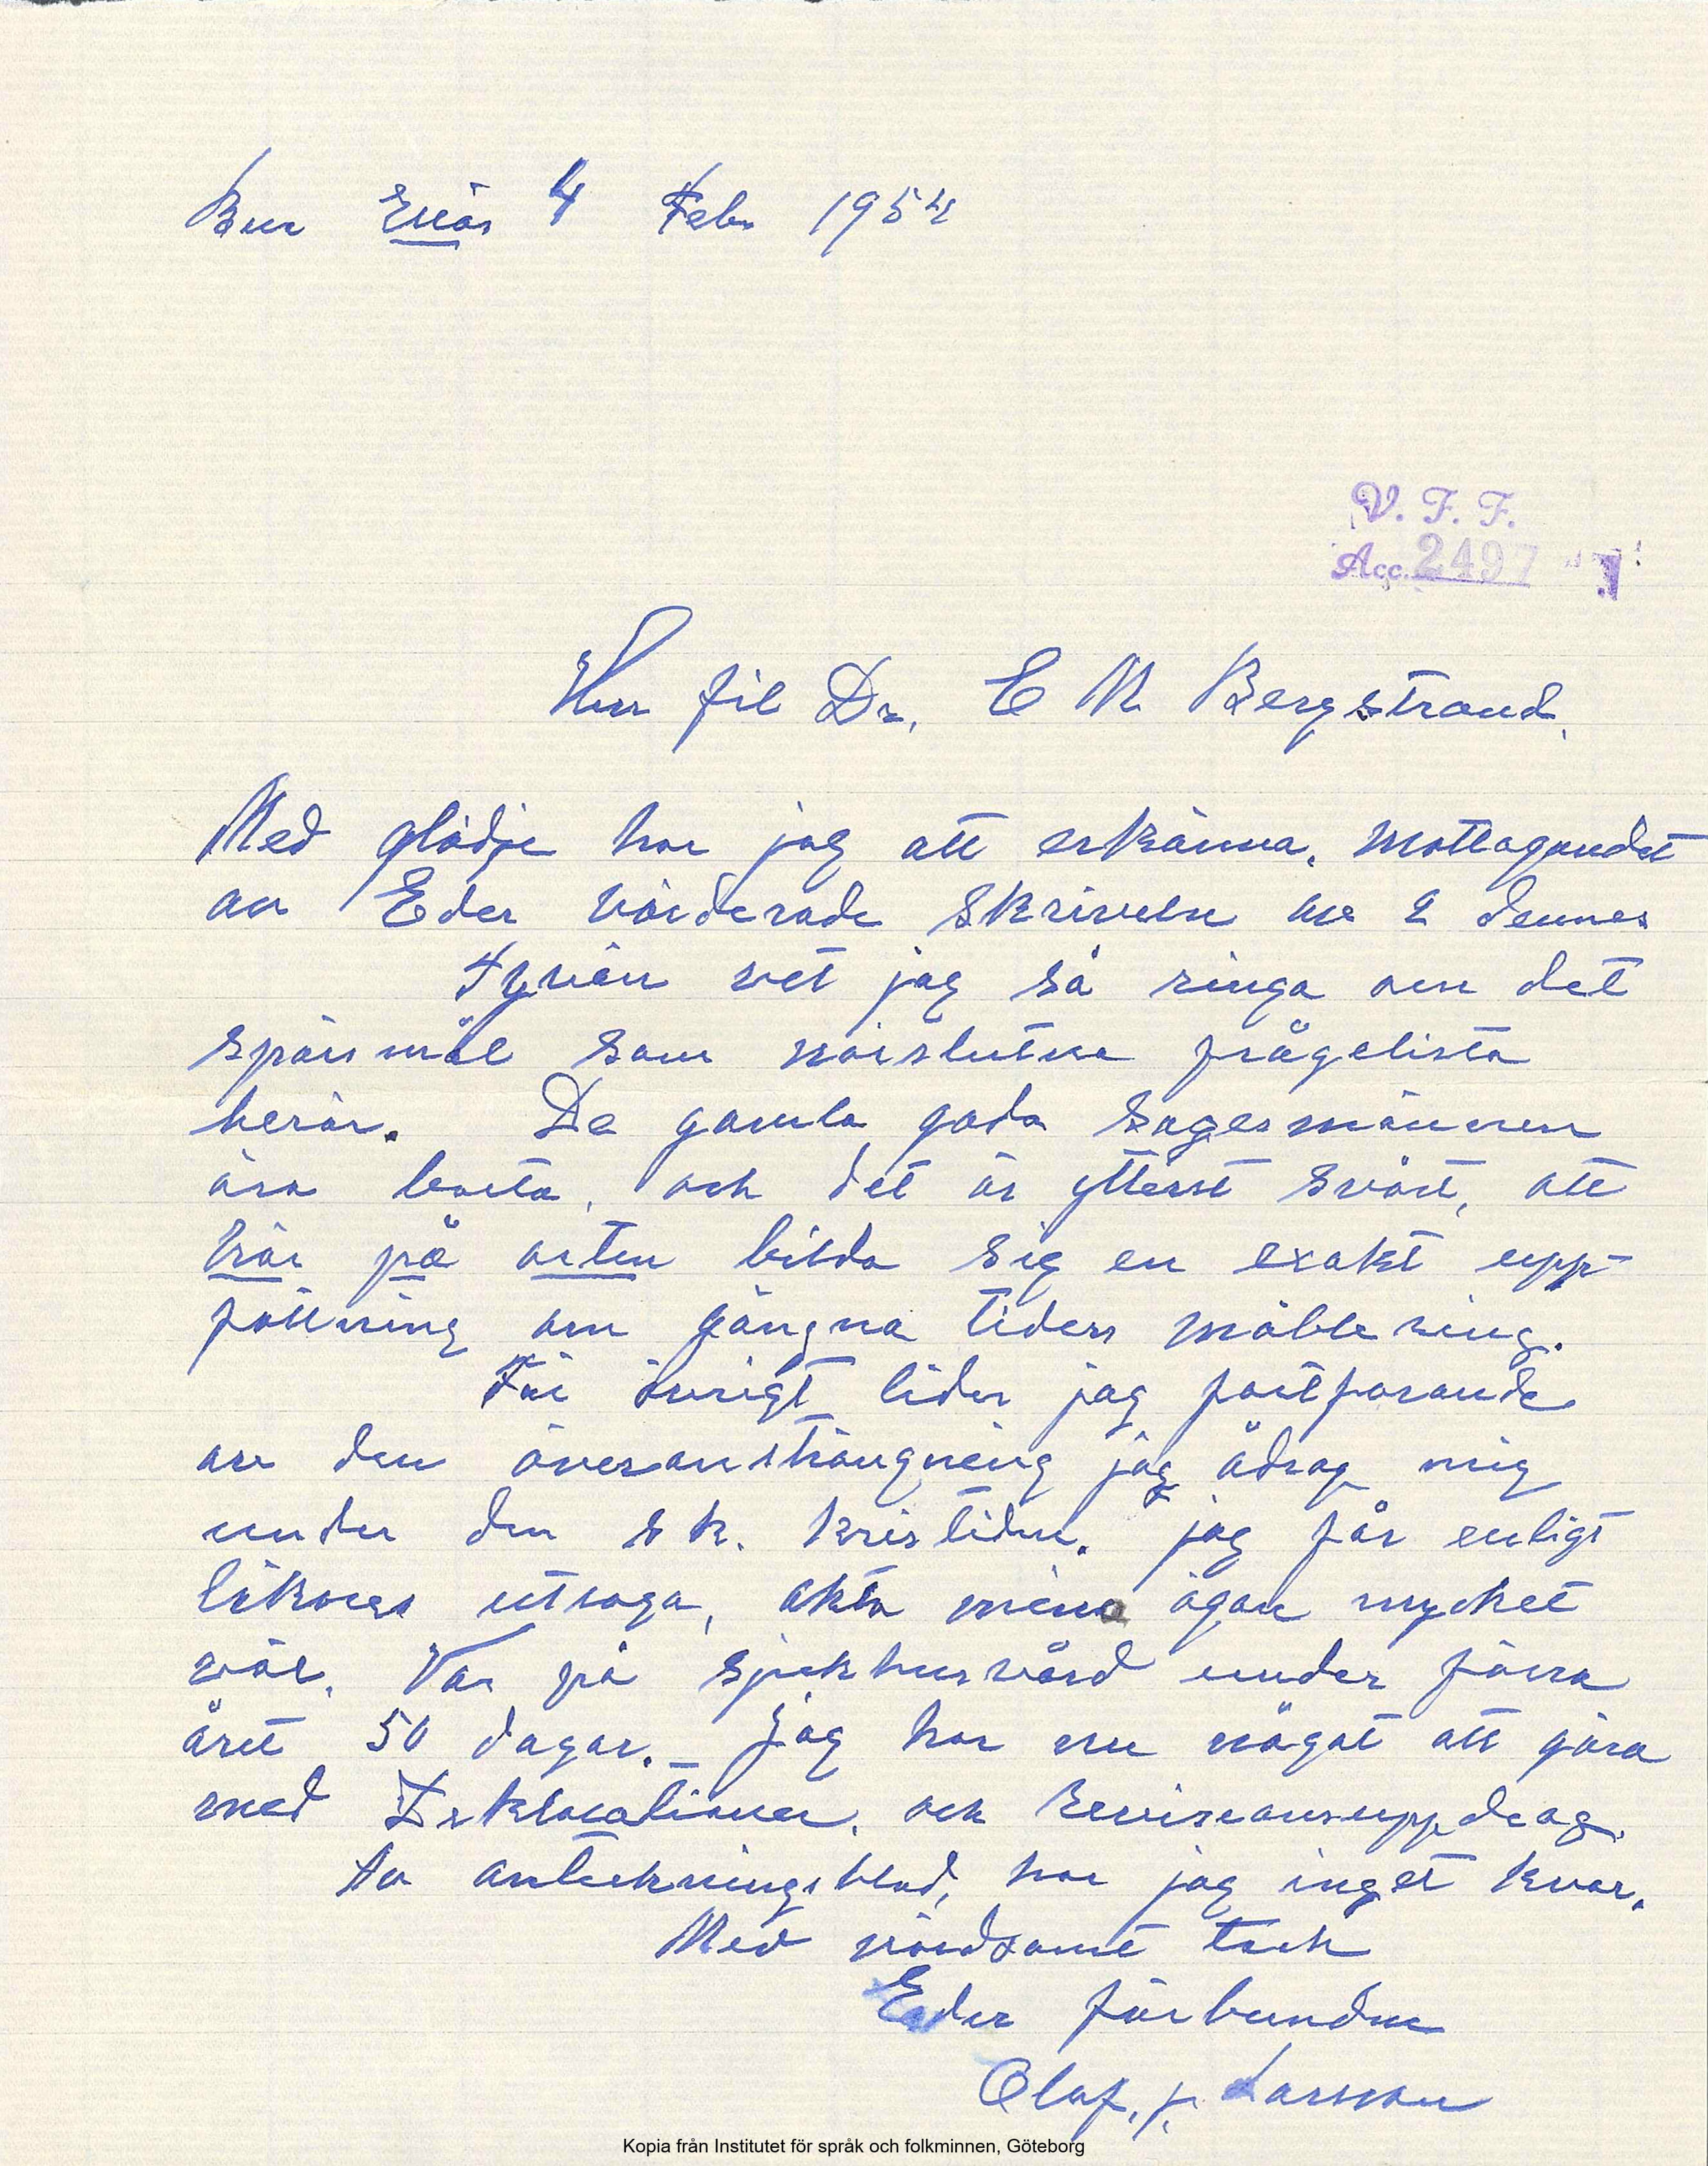 Bur Enås 4 Febr 1954
V. F. F.
Acc. 2497
Herr fil Dr. E M Bergstrand.
Med glädje har jag att erkänna. Mottagandet
av Eder värderade skrivelse av 2 dennes
Tyvärr vet jag så ringa om det
spörsmål som närslutna frågelista
berör. De gamla goda sagesmännen
äro borta, och det är ytterst svårt, att
här på orten bilda sig en exakt upp-
fattning om gångna tiders möblering.
För övrigt lider jag fortfarande
av den överansträngning jag ådrog mig
under den s k. kristiden. jag får enligt
läkares utsaga, akta mina ögon mycket
väl. Var på sjukhusvård under förra
året 50 dagar. _ Jag har nu något att göra
med Deklarationer. och Revisionsuppdrag.
Av anteckningsblad, har jag inget kvar.
Med vördsamt tack
Eder förbundne
Olof. J. Larsson
Kopia från Institutet för språk och folkminnen, Göteborg